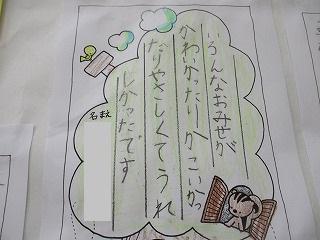 いろんなおみせが
かわいかったり かこいかっ
たりやさしくてうれ
しかったです
名まえ